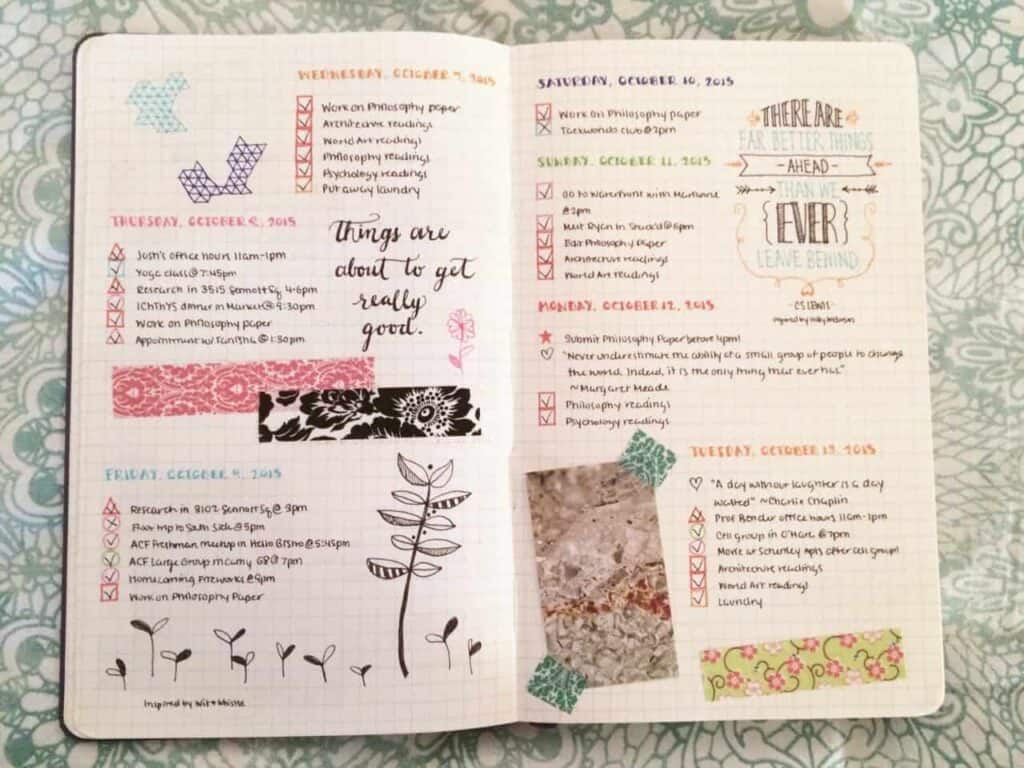 WEDNESDAY, OCTOBER 7, 2015
Work on Philosophy paper
Architecture readings
World Art readings
Philosophy readings
Psychology readings
Put away laundry
THURSDAY, OCTOBER 8, 2015
Josh's office hours 11am-1pm
Yoga class @ 7:45pm
Research in 3515 Sennott Sq 4-6pm
ICHTHYS dinner in Market @ 5:30pm
Work on Philosophy paper
Appointment w/ Tanisha @ 1:30pm
things are
about to get
really
good.
FRIDAY, OCTOBER 9, 2015
Research in 3102 Sennott Sq @ 3pm
Floor trip to South Side @ 5pm
ACF Freshman Meetup in Hello Bistro @ 5:45pm
ACF Large Group in Cathy G8 @ 7pm
Homecoming Fireworks @ 9pm
Work on Philosophy Paper
Inspired by
SATURDAY, OCTOBER 10, 2015
Work on Philosophy paper
Taekwondo club @ 2pm
SUNDAY, OCTOBER 11, 2015
Go to Waterfront with Marianne
@ 2pm
Meet Ryan in @ 6pm
Edit Philosophy Paper
Architecture readings
World Art readings
THERE ARE
FAR BETTER THINGS
AHEAD
THAN WE
{EVER}
LEAVE BEHIND
- CS LEWIS -
inspired by
MONDAY, OCTOBER 12, 2015
Submit Philosophy Paper before 4pm!
"Never underestimate the ability of a small group of people to change
the world. Indeed, it is the only thing that ever has."
~Margaret Meade
Philosophy readings
Psychology readings
TUESDAY, OCTOBER 13, 2015
"A day without laughter is a day
wasted" ~Charlie Chaplin
Prof Bender office hours 11am-1pm
Cell group in O'Hara @ 7pm
Movie at Schenley Apts after cell group!
Architecture readings
World Art readings
Laundry